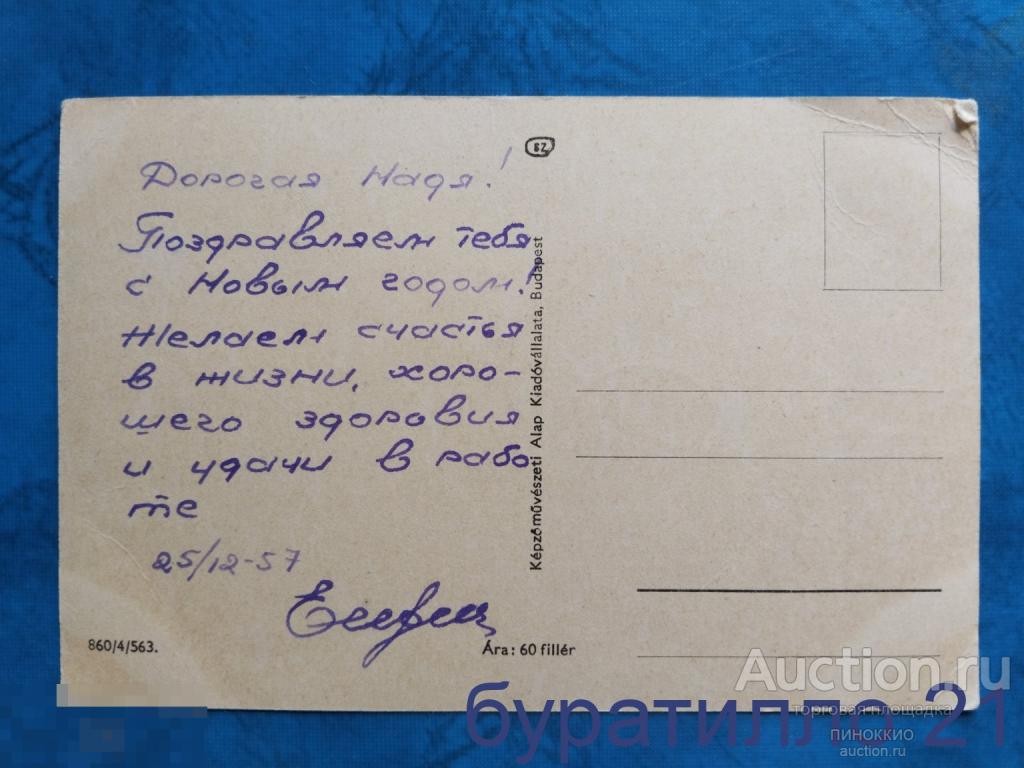 Дорогая Надя!
Поздравляем тебя
с Новым годом!
Желаем счастья
в жизни, хоро-
шего здоровия
и удачи в рабо
те
25/12-57
860/4/563.
Ára: 60 fillér
Képzőművészeti Alap Kiadóvállalata, Budapest
Auction.ru
торговая площадка
ПИНОККИО
auction.ru
буратилло 21